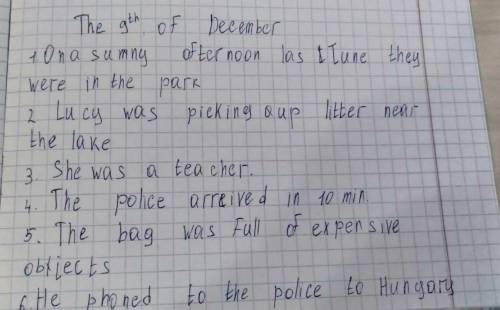 The 9th of December
1. On a sumny afternoon las t Iune they
were in the park
2 Lucy was picking up litter near
the lake
3. She was a teacher.
4. The police arreived in 10 min.
5. The bag was full of expensive
obxjects
6. He phoned to the police to Hungary